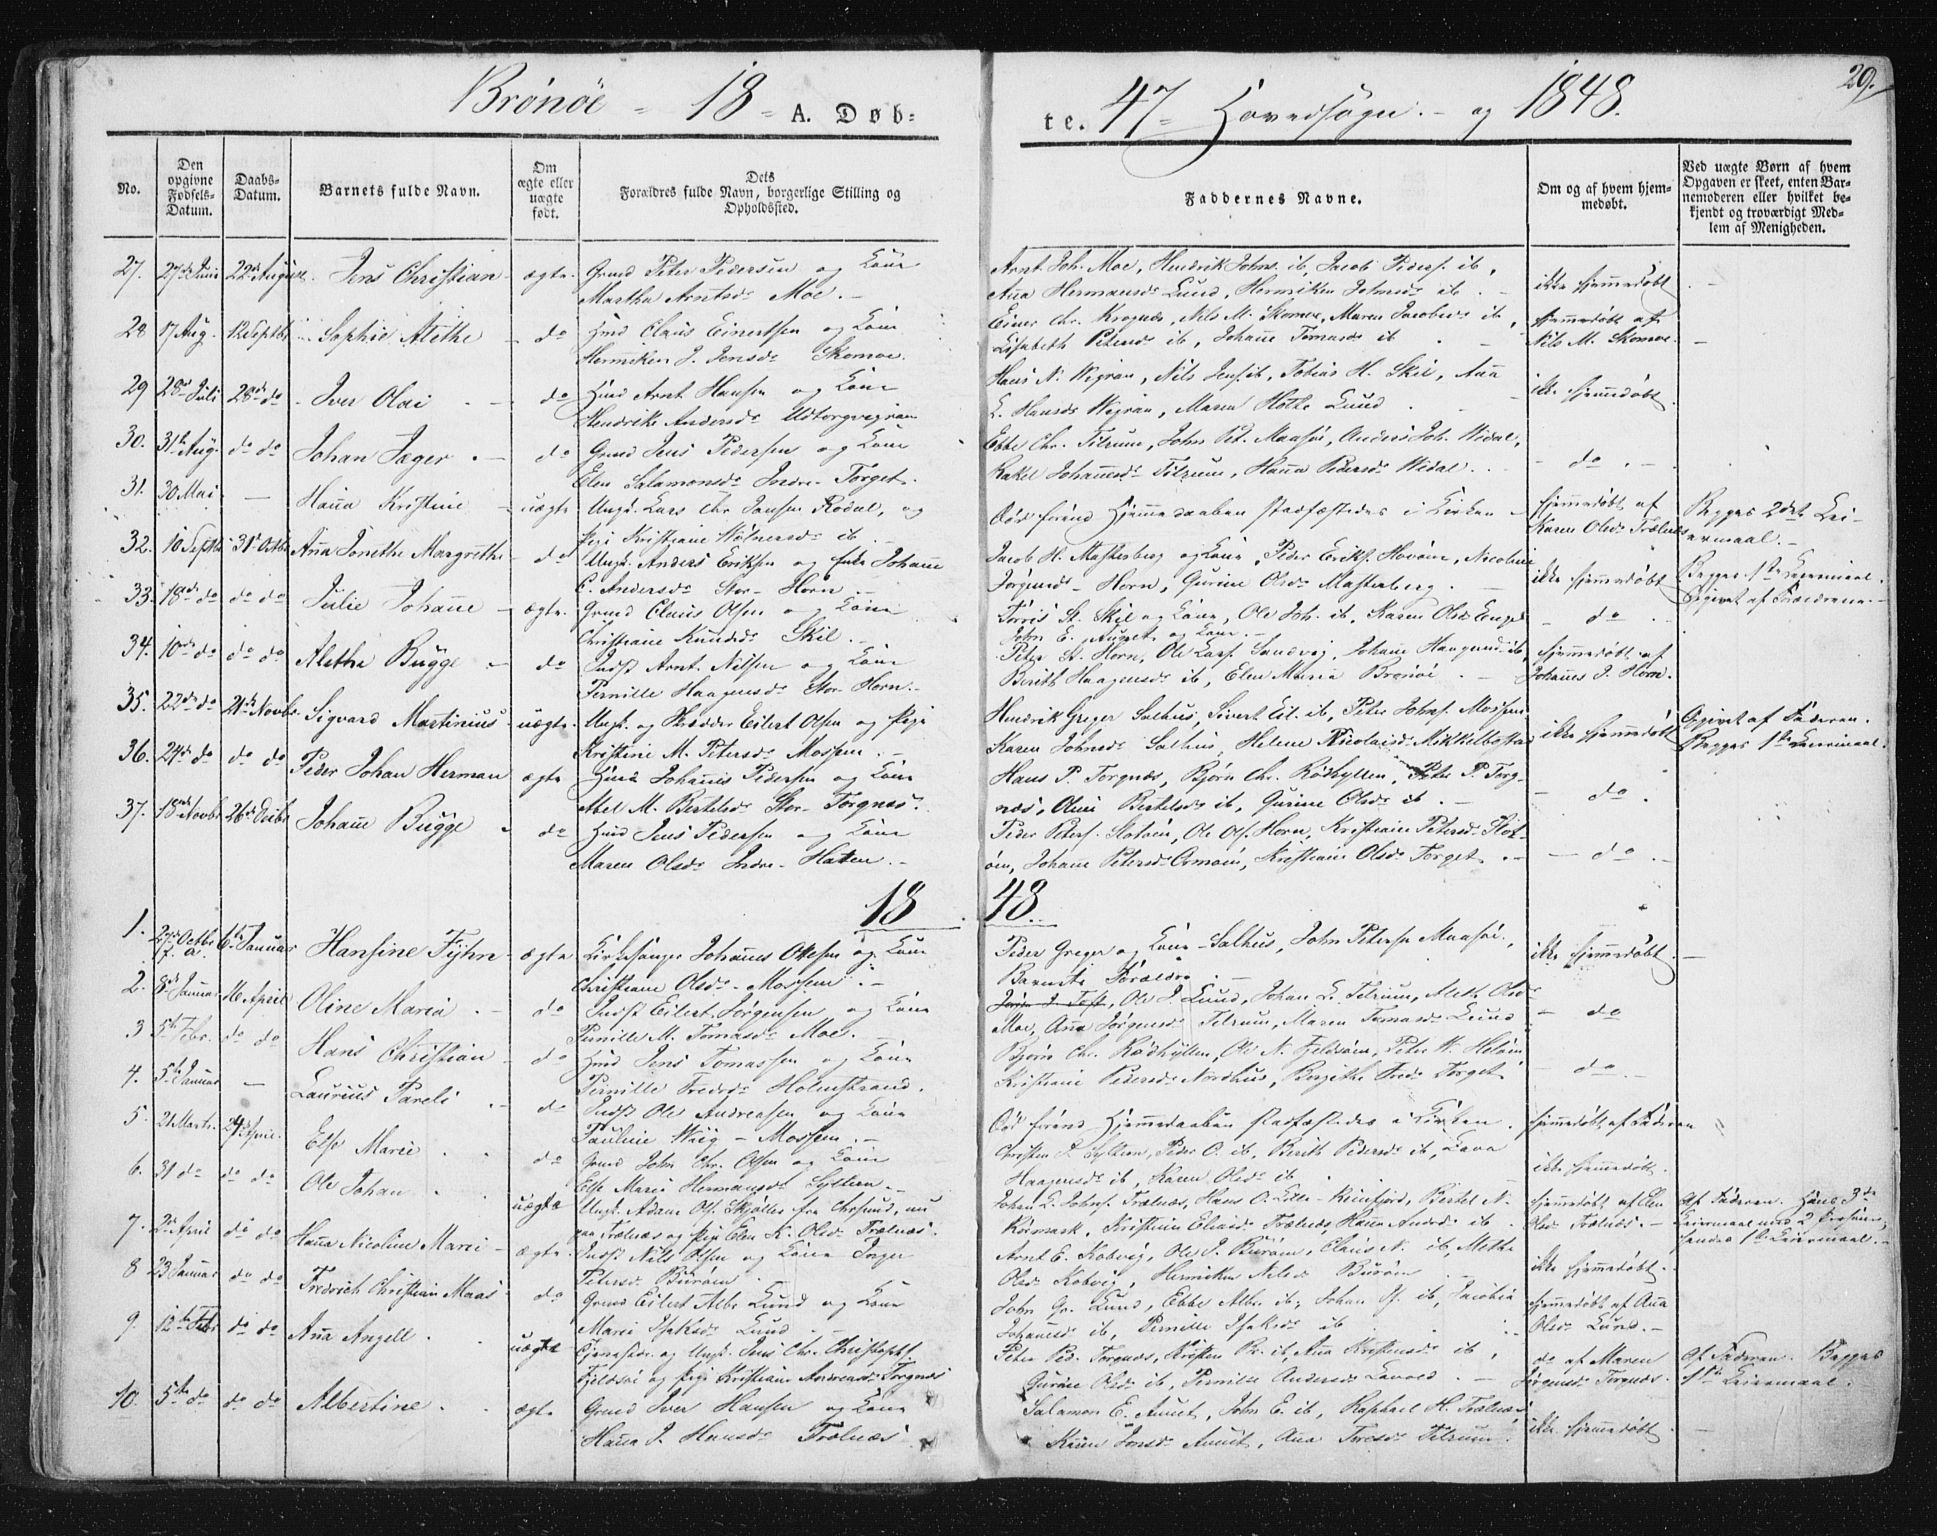 Brönöe - 18 - A. Døb-
te. 47 - Hovedsogn. - og 1848.
29.
No.
Den opgivne Fødsels-Datum.
Daabs-Datum.
Barnets fulde Navn.
Om ægte eller uægte født.
Dets Forældres fulde Navn, borgerlige Stilling og Opholdssted.
Faddernes Navne.
Om og af hvem hjemmedøbt.
Ved uægte Børn af hvem Opgaven er skeet, enten Barnemoderen eller hvilket bekjendt og troværdigt Medlem af Menigheden.
27. 27de Juni 22de August. Jens Christian ægte. Gmd Peter Pedersen og Kone
Martha Arntsdr Moe. -
Arnt Joh. Moe, Hendrik Johns. ib, Jacob Peders. ib,
Ana Hermansdr Lund, Henriken Johnsdr ib. -
ikke hjemmedøbt
28 17 Aug. 12 Septbr Sophie Alethe do Hmd Claus Einertsen og Kone
Henriken J. Jensdr Skomoe.
Einer Chr. Krognæs, Nils M. Skomoe, Maren Jacobsdr ib,
Lisabeth Petersdr ib, Johane Tomasdr ib
hjemmedøbt af
Nils M. Skomoe.
29 28de Juli 28de do Iver Olai do Hmd Arnt Hansen og Kone
Hendrike Andersdr Udtorgvegran
Hans N. Wegran, Nils Jens. ib, Tobias H. Skil, Ana
L. Hansdr Wegran, Maren Holte Lund
ikke hjemmedøbt
30. 31te Aug. do do Johan Jæger do Gmd Jens Pedersen og Kone
Elen Salamonsdr Indre-Torget.
Ebbe Chr. Tilrum, John Ped. Maasöe, Anders Joh. Wedal,
Rakel Johannesdr Tilrum, Hana Pedersdr Wedal.
do
31. 30 Mai - Hana Kristine uægte Ungk. Lars Chr. Jansen Rodal, og
Pige Kristiane ib.
Död förend Hjemmedaaben stadfæstedes i Kirken
hjemmedøbt af
Karen Olsdr Trælnes
Begges 2det Leiermaal. -
32. 10 Septbr 31te Octbr Ana Jonethe Margrethe do Ungk. Anders Eriksen og Enke Johane
C. Andersdr Stor-Horn
Jacob H. Mastersberg og Kone, Peder Eriks. Havöin, Nicoline
Jörgensdr Horn, Gurine Olsdr Mastersberg.
ikke hjemmedøbt
Begges 1ste Leiermaal.
Opgivet af Forældrene.
33. 18de do do do Julie Johane ægte. Gmd Claus Olsen og Kone
Christiane Knudsdr Skil. -
Torris St. Skil og Kone, Ole Joh. ib, Karen Olsdr
John E. og Kone.
do
34. 10de do do do Alethe Bugge do Indst Arnt Nilsen og Kone
Pernille Haagensdr Stor-Horn. -
Peter St. Horn, Ole Lars. Sandvig, Johane Haagensdr ib,
Bereth Haagensdr ib, Elen Maria Brönöe.
hjemmedøbt af
Johanes J. Horn.
35. 22de do 21de Novbr. Sigvard Martinius uægte Ungk. og Skrædder Eilert Olsen og Pige
Kristine M. Petersdr Mossem. -
Hendrik Greger Salhus, Sivert Eil. ib, Peter Johns. Mossem
Karen Johnsdr Salhus, Helene Nicolaisdr Mikkelbostad
ikke hjemmedøbt
Opgivet af Faderen.
Begges 1ste Leiermaal.
36. 24de do do do Peder Johan Herman ægte Hmd Johannes Pedersen og Kone
Abel M. Bertelsdr Stor-Torgnæs.
Hans P. Torgnæs, Bjørn Chr. Rödhyllen, Peter P. Torg-
næs, Oline Bertelsdr ib, Gurine Olsdr ib. -
do.
37. 18de Novbr 26de Decbr Johane Bugge do Hmd Jens Pedersen og Kone
Maren Olsdr Indre-Hatten. -
Peder Peters. Slotöin, Ole Ols. Horn, Kristiane Petersdr Slot-
öin, Johane Petersdr Armöin, Kristiane Olsdr Torget. -
do.
18 48.
1. 27de Octbr f. A. 6te Januar Hansine Fyhn ægte Kirkesanger Johannes Ottesen og Kone
Christiane Olsdr Mossem. -
Peder Greger og Kone Salhus, John Petersen Maasöe.,
Barnets Forældre.
ikke hjemmedøbt.
2. 8de Januar 16 April Oline Maria do Indst Eilert Jörgensen og Kone
Pernille M. Tomasdr Moe.
Ole J. Lund, Johan L. Tilrum, Aleth Olsdr
Moe, Ana Jörgensdr Tilrum, Maren Tomasdr Lund
do
3 5te Febr. do do Hans Christian do Hmd Jens Tomassen og Kone
Pernille Fredrdr Holmstrand.
Bjørn Chr. Rödhyllen, Ole N. Fjeldsöin, Peter W. Holöin
Kristiane Pedersdr Nordhus, Bergithe Fredr Torget
do.
4. 5te Januar - Laurius Pareli do Indst Ole Andreassen og Kone
Pauline Wiig - Mossem. -
Död förend Hjemmedaaben stadfæstedes i Kirken.
hjemmedøbt af Faderen
5. 21 Marts 24de April. Else Marie do Gmd John Chr. Olsen og Kone
Else Marie Hermansdr Syltern. -
Christen L. Syltern, Peder O. ib, Bereth Pedersdr ib, Lava
Haagensdr ib, Karen Olsdr ib.
ikke hjemmedøbt.
6. 31 do do do Ole Johan uægte Ungk. Adam Ols. Skjölle fra Chrsund, nu
paa Trælnæs og Pige Elen K. Olsdr Trælnæs.
Johan L. Johns. Trælnæs, Hans O. Lille-Reinfjord, Bertel N.
Körmark, Kristiane Eliasdr Trælnæs, Hana Andrsdr ib.
hjemmedøbt af Elen
Olsdr Trælnæs. -
af Faderen. Hans 3de
Leiermaal med 2 Personer,
hendes 1ste Leiermaal. -
7. 2de April do do Hana Nicoline Marie ægte. Indst Nils Olsen og Kone Inger
Petersdr Buröin.
Arnt E. Kobvig, Ole J. Buröin, Claus N. ib, Methe
Olsdr Kobvig, Henriken Nilsdr Buröin.
ikke hjemmedøbt.
8 23 Januar do do Fredrich Christian Maas do Gmd Eilert Albr. Lund og Kone
Marie Isaksdr Lund.
John Gr. Lund, Ebbe Albr. ib, Johan J. ib, Jacobia
Johannesdr ib, Pernille Isaksdr ib
hjemmedøbt af Ana
Olsdr Lund. -
9. 12te Febr do do Ana Angell uægte Tjenestedr. og Ungk. Jens Chr. Christophs.
Fjeldsöe og Pige Kristiane Andreasdr Torgnæs
Peter Ped. Torgnæs, Kristen Pe. ib, Ana Kristensdr ib,
Gurine Olsdr ib, Pernille Andersdr
do af Maren
Jörgensdr Torgnæs.
af Faderen. Begges
1ste Leiermaal.
10. 5te do do do Albertine ægte Gmd Iver Hansen og Kone
Hana J. Hansdr Trælnæs
Salamon E. Aunet, John E. ib, Raphael H. Trælnæs
Karen Jonsdr Aunet, Ana Toresdr Tilrum.
ikke hjemmedøbt.